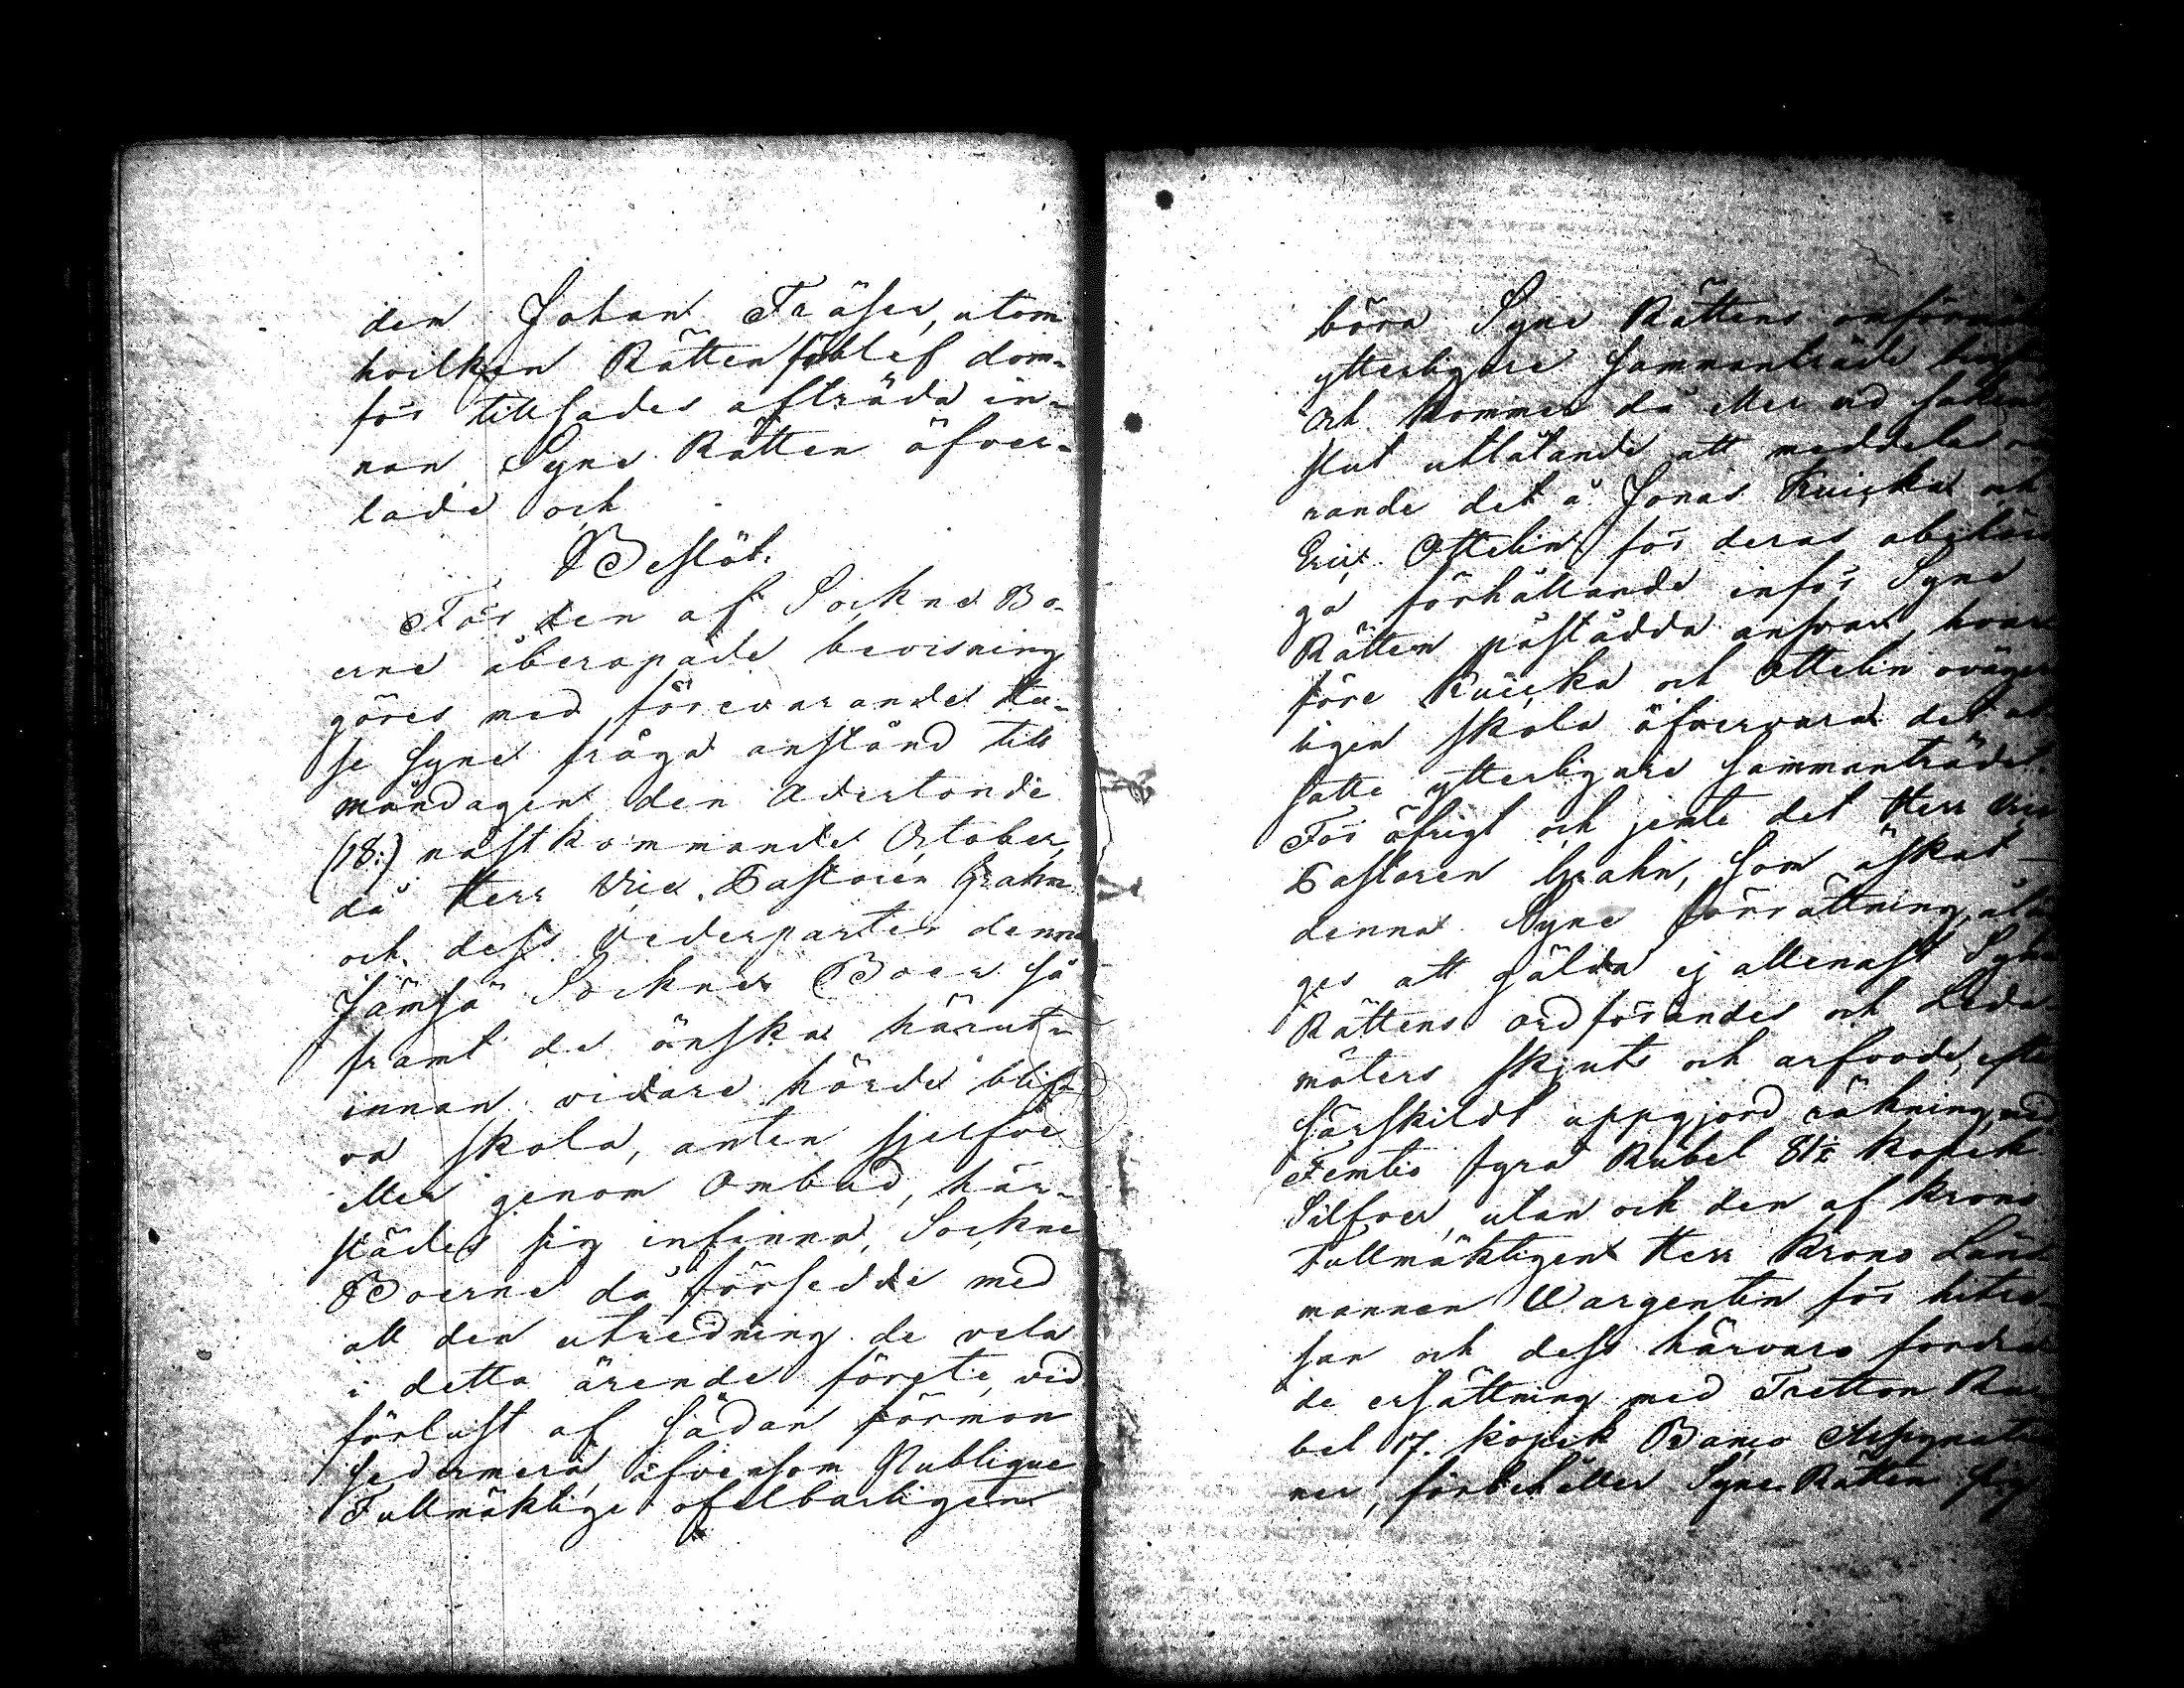 den Johan Träfer, utom
hvilken Rätten förblef dom-
för tillsades afträda in-
nan Syne Rätten öfver-
lade och
Beslöt:
För den af Sockne Bo-
erne åberopade bevisning
göres med förevarande Hu-
se syne fråga anstånd till
måndagen den Adertonde
(18:) nästkommande October,
då Herr Vice Pastoren Grahn
och dess Vederparter denna
Jämsä Socknes Boer så
framt de önska härut-
innan vidare hörde blif-
va skola, anten sjelfve
eller genom Ombud, här-
städes sig infinna, Sockne
Boerne då försedde med
all den utredning de vela
i detta ärende förete, vid
förlust af sådan förmon
sedermera, äfvensom Publique
Fullmäktige ofelbarligen
böra Syne Rättens
ytterligare sammanträde
och kommer då eller vid sakens
slut utlåtande att meddelas
rande det å Jonas Kuicka och
Eric Ottelin för deras
ga förhållande inför Syne
Rätten påstådda ansvar, hvar-
före Kuicka och Ottelin
ligen skola öfvervara det
satte ytterligare sammanträdet.
För öfrigt och jemte det Herr Vice
Pastoren Grahn, som äskat
denna Syne förrättning, åläg-
ges att gälda ej allenast Syne
Rättens Ordförandes och Leda-
möters skjuts och arfvode, efter
särskildt uppgjord räkning, med
Femtio fyra Rubel 81½ kopek
Silfver, utan och den af Krono
Fullmäktigen Herr Krono Läns-
mannen Wargentin för hitre-
san och dess härvaro fordra-
de ersättning med Tretton Ru-
bel 17. kopek Banco Assignatio-
ner, förbehåller Syne Rätten sig